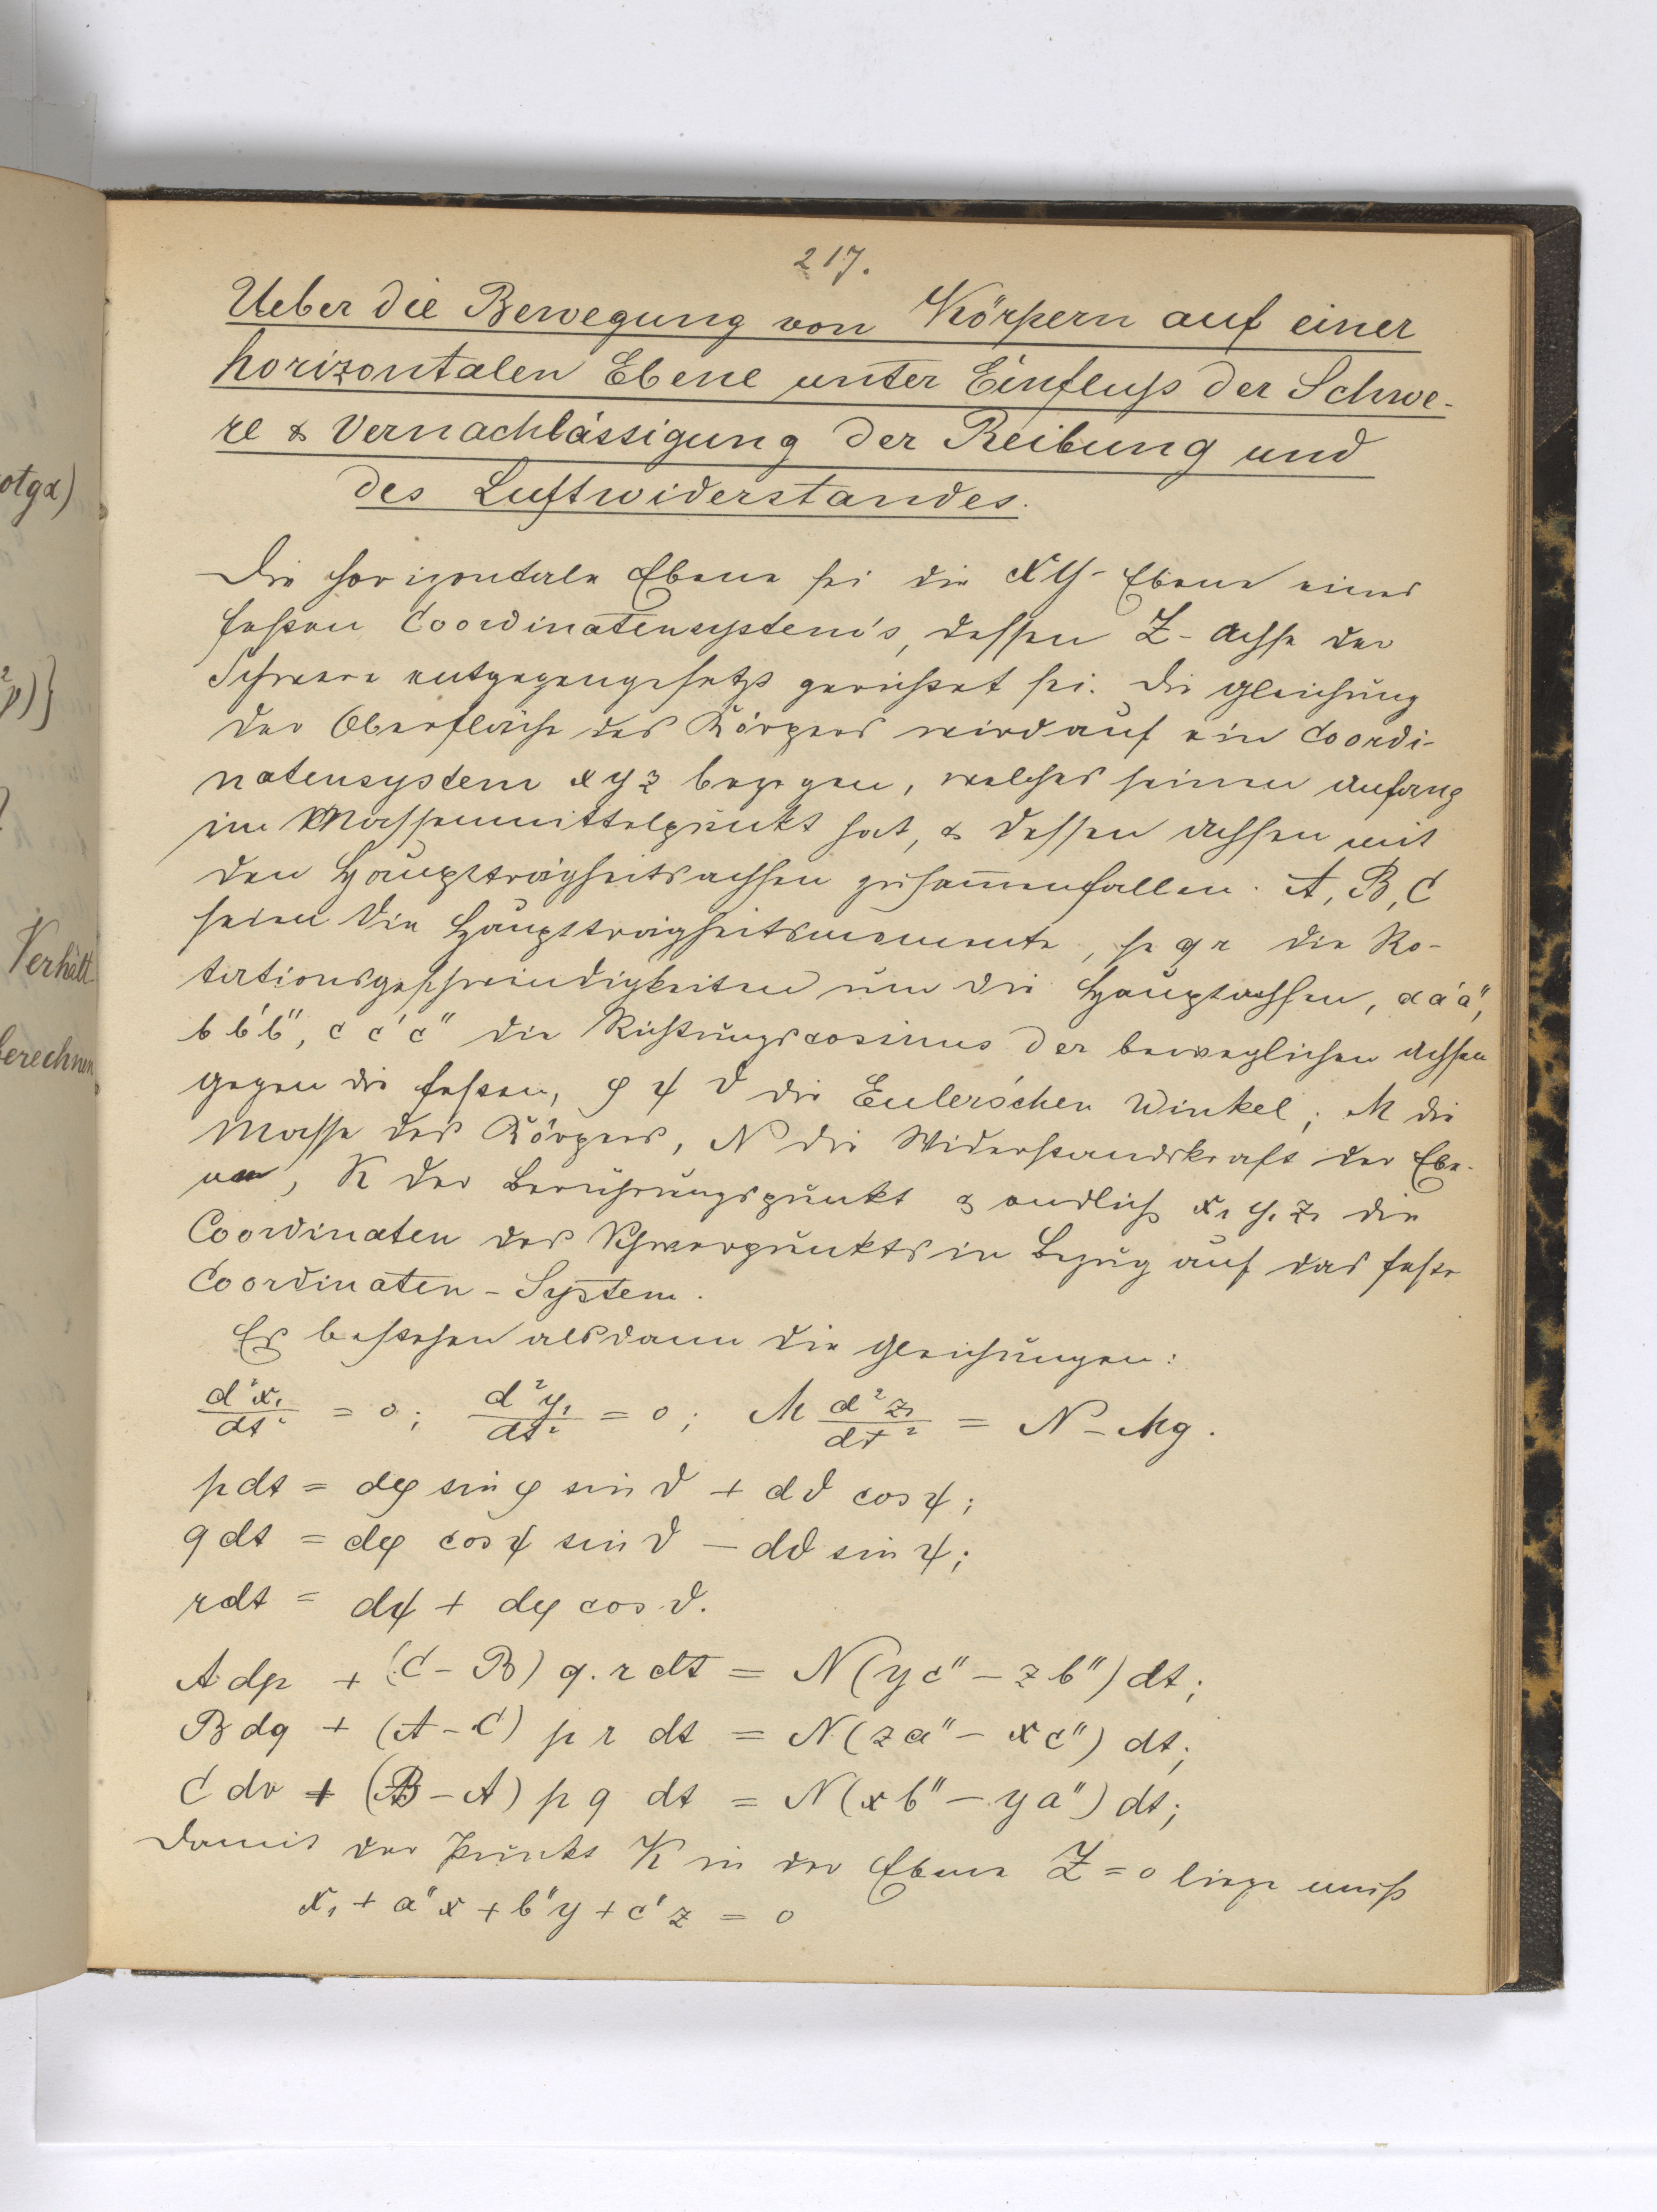 217.
Ueber die Bewegung von Körpern auf einer
horizontalen Ebene unter Einfluß der Schwe-
re & Vernachlässigung der Reibung und
des Luftwiderstandes.
Die horizontale Ebene sei die XY-Ebene eines
festen Coordinatensystem's, dessen Z-Achse der
Schwere entgegengesetzt gerichtet sei. Die Gleichung
der Oberfläche des Körpers wird auf ein Coordi-
natensystem x y z bezogen, welches seinen Anfang
im Massenmittelpunkt hat, & dessen Achsen mit
den Hauptträgheitsachsen zusammenfallen. A, B, C
seien die Hauptträgheitsmomente, p q r die Ro-
tationsgeschwindigkeiten um die Hauptachsen, a a' a'',
b b' b'', c c' c'' die Richtungscosinus der beweglichen Achsen
gegen die festen, φ ψ ϑ die Euler'schen Winkel; M die
Masse des Körpers, N die Widerstandskraft der Ebe-
ne, K der Berührungspunkt & endlich x₁ y₁ z₁ die
Coordinaten des Schwerpunkts in Bezug auf das feste
Coordinaten-System.
Es bestehen alsdann die Gleichungen:
d²x₁/dt² = 0; d²y₁/dt² = 0; M d²z₁/dt² = N – Mg.
p dt = dφ sin φ sin ϑ + dϑ cos ψ;
q dt = dφ cos ψ sin ϑ – dϑ sin ψ;
r dt = dψ + dφ cos ϑ.
A dp + (C – B) q. r dt = N (y c'' – z b'') dt;
B dq + (A – C) p r dt = N (z a'' – x c'') dt;
C dr + (B – A) p q dt = N (x b'' – y a'') dt;
Damit der Punkt K in der Ebene Z = 0 liege muß
x₁ + a''x + b''y + c'z = 0
otgα)
²p)}
Verhält
berechnen